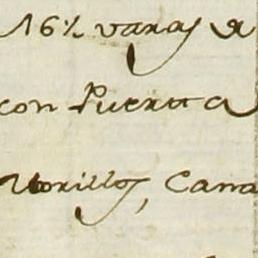 16½ varas de
con Puerta a
Morillos, Cana